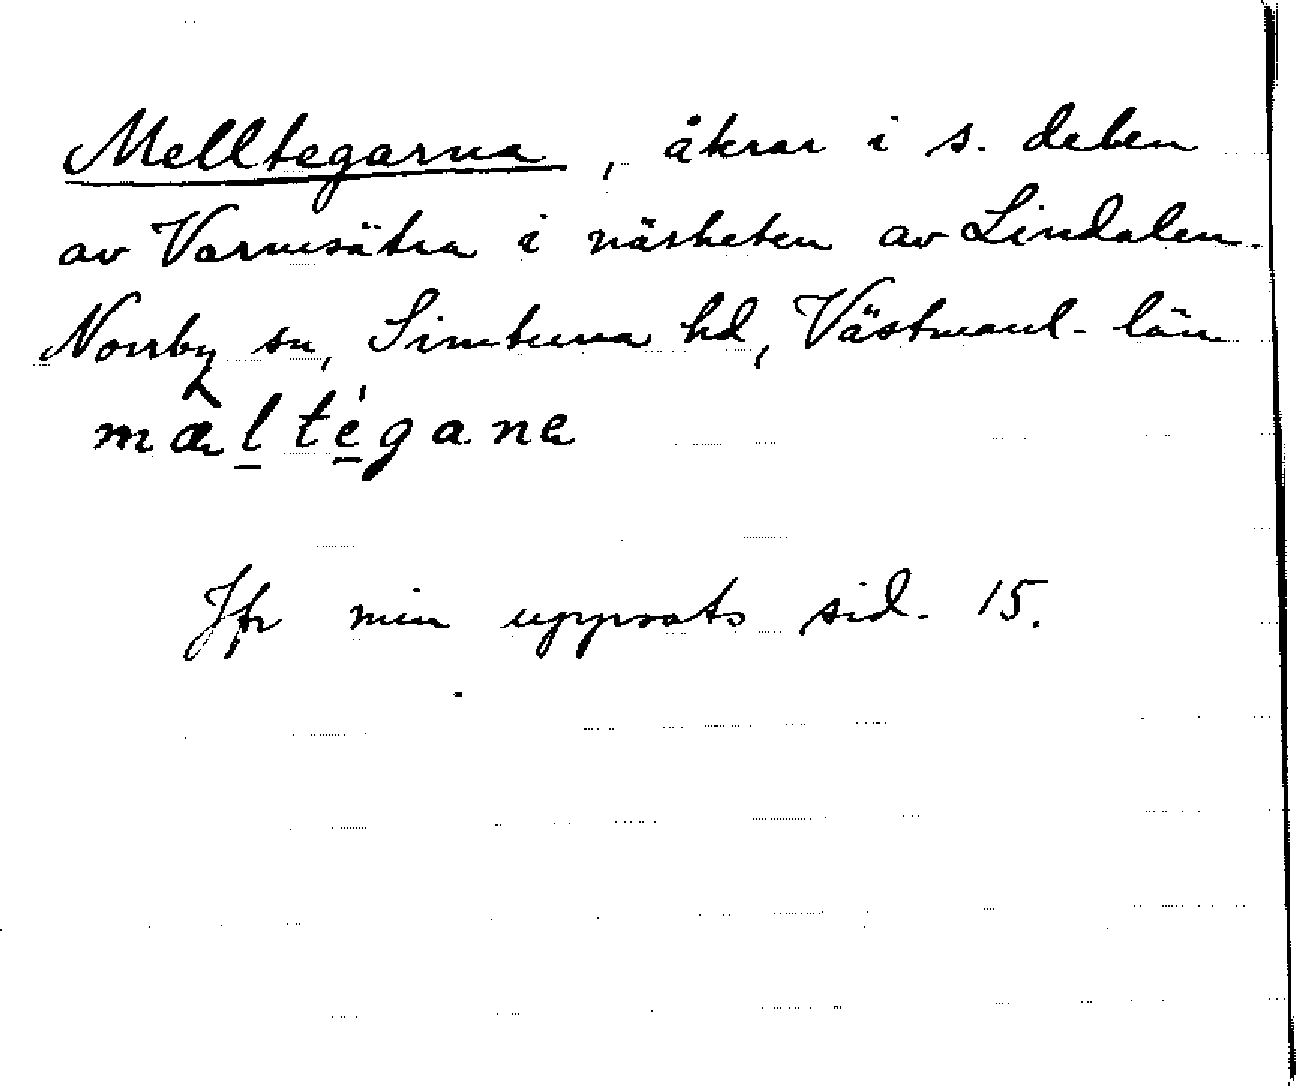 Melltegarna, åkrar i s. delen
av Varmsätra i närheten av Lindalen.
Norrby sn, Simtuna hd, Västmanl. län
mæ̂l̲té̲gana
Jfr min uppsats sid. 15.